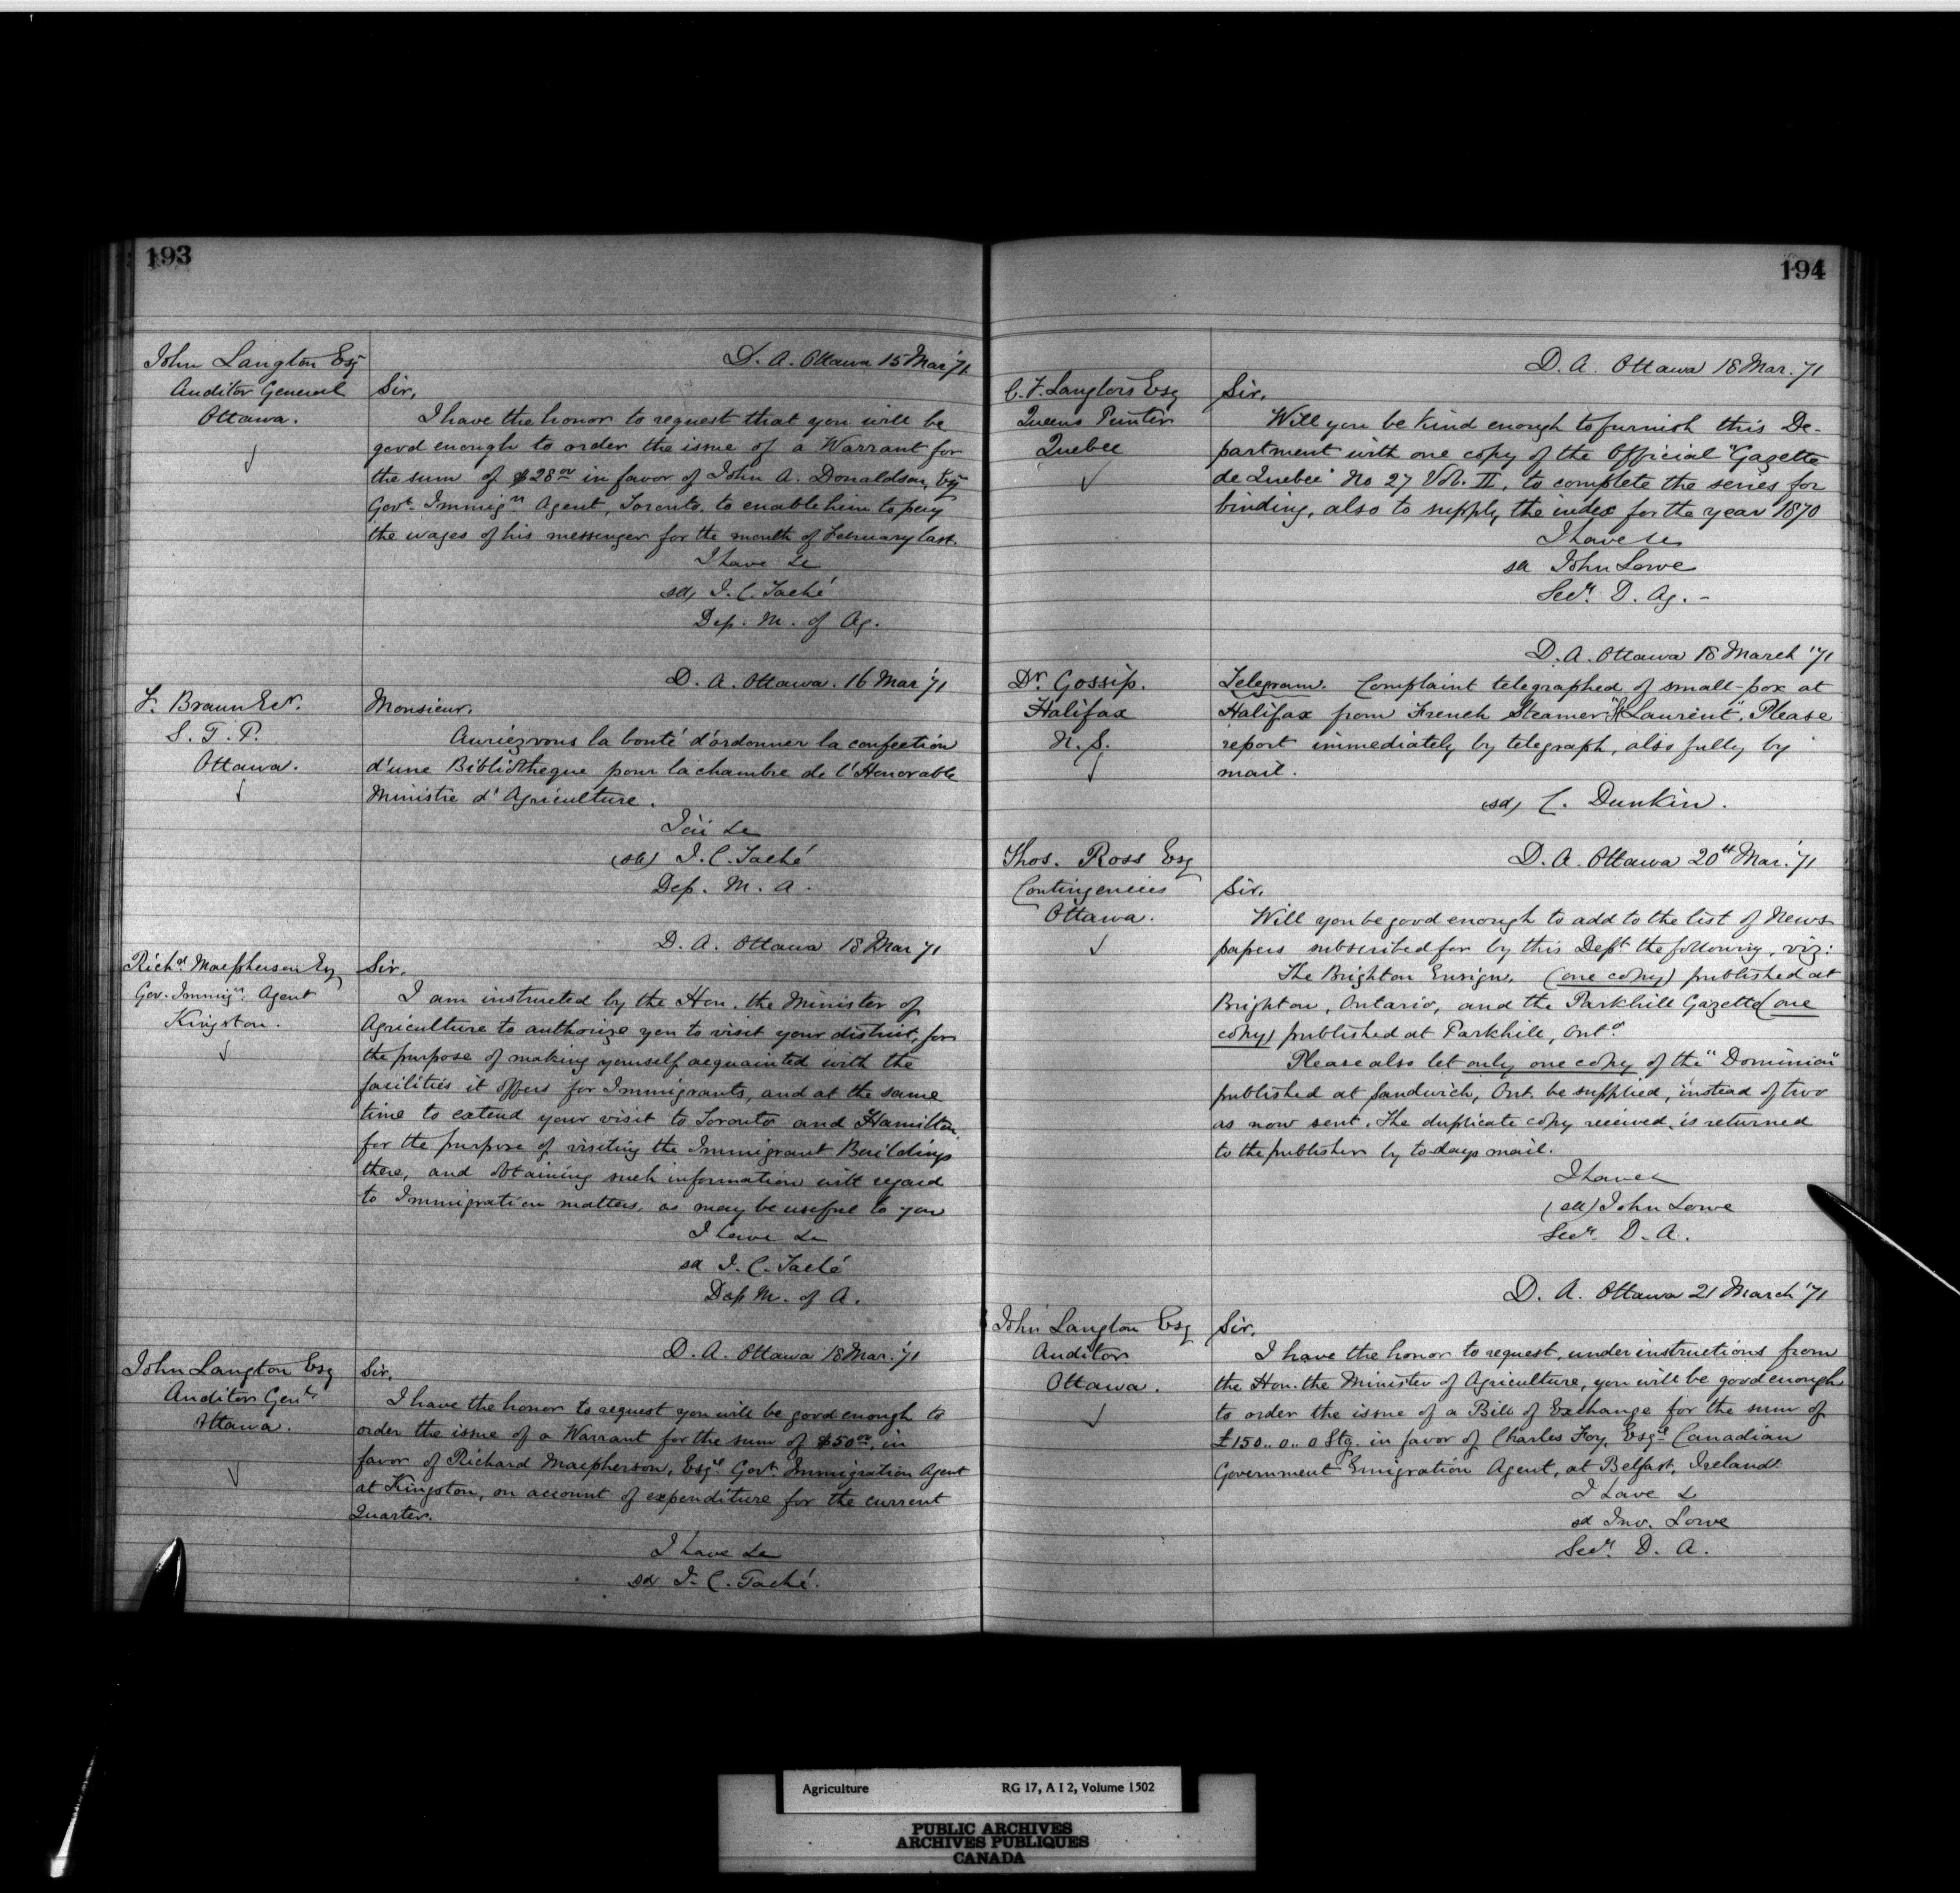 193
John Langton Esq
Auditor General
Ottawa.
D. A. Ottawa 15 Mar '71
Sir,
I have the honor to request that you will be
good enough to order the issue of a Warrant for
the sum of $28.00 in favor of John A. Donaldson, Esq
Govt. Immign Agent, Toronto, to enable him to pay
the wages of his messenger for the month of February last.
I have &c
(sd) J. C. Taché
Dep. M. of Ag.
F. Braun Ecr.
S. T. P.
Ottawa.
D. A. Ottawa. 16 Mar '71
Monsieur,
Auriez vous la bonté d'ordonner la confection
d'une Bibliothèque pour la chambre de l'Honorable
Ministre d'Agriculture.
J'ai &c
(sd) J. C. Taché
Dep. M. A.
Richd Macpherson Esq
Gov. Immign Agent
Kingston.
D. A. Ottawa 18 Mar '71
Sir,
I am instructed by the Hon. the Minister of
Agriculture to authorize you to visit your district, for
the purpose of making yourself acquainted with the
facilities it offers for Immigrants, and at the same
time to extend your visit to Toronto and Hamilton
for the purpose of visiting the Immigrant Buildings
there, and obtaining such information with regard
to Immigration matters, as may be useful to you
I have &c
sd J. C. Taché
Dep M. of A.
John Langton Esq
Auditor Genl.
Ottawa.
D. A. Ottawa 18 Mar. '71
Sir,
I have the honor to request you will be good enough to
order the issue of a Warrant for the sum of $50.00, in
favor of Richard Macpherson, Esqre Govt. Immigration Agent
at Kingston, on account of expenditure for the current
Quarter.
I have &c
sd J. C. Taché.
194
C. F. Langlois Esq
Queens Printer
Quebec
D. A. Ottawa 18 Mar. '71
Sir,
Will you be kind enough to furnish this De-
partment with one copy of the Official "Gazette
de Quebec" No 27 Vol. II, to complete the series for
binding, also to supply the index for the year 1870
I have &c
sd John Lowe
Secy. D. Ag. -
D. A. Ottawa 18 March '71
Dr. Gossip.
Halifax
N. S.
Telegram. Complaint telegraphed of small-pox at
Halifax from French Steamer "St Laurent". Please
report immediately by telegraph, also fully by
mail.
(sd) C. Dunkin.
Thos. Ross Esq
Contingencies
Ottawa.
D. A. Ottawa 20th Mar. '71
Sir,
Will you be good enough to add to the list of News
papers subscribed for by this Dept. the following, viz:
The Brighton Ensign, (one copy) published at
Brighton, Ontario, and the Parkhill Gazette (one
copy) published at Parkhill, Onto
Please also let only one copy of the "Dominion"
published at Sandwich, Ont. be supplied, instead of two
as now sent. The duplicate copy received, is returned
to the publisher by to-days mail.
I have &c
(sd) John Lowe
Secy. D. A.
D. A. Ottawa 21 March '71
John Langton Esq
Auditor
Ottawa.
Sir,
I have the honor to request, under instructions from
the Hon. the Minister of Agriculture, you will be good enough
to order the issue of a Bill of Exchange for the sum of
£150..0..0 Stg. in favor of Charles Foy, Esqre Canadian
Government Emigration Agent, at Belfast, Ireland.
I have &
sd Jno. Lowe
Secy. D. A.
Agriculture RG 17, A I 2, Volume 1502
PUBLIC ARCHIVES
ARCHIVES PUBLIQUES
CANADA